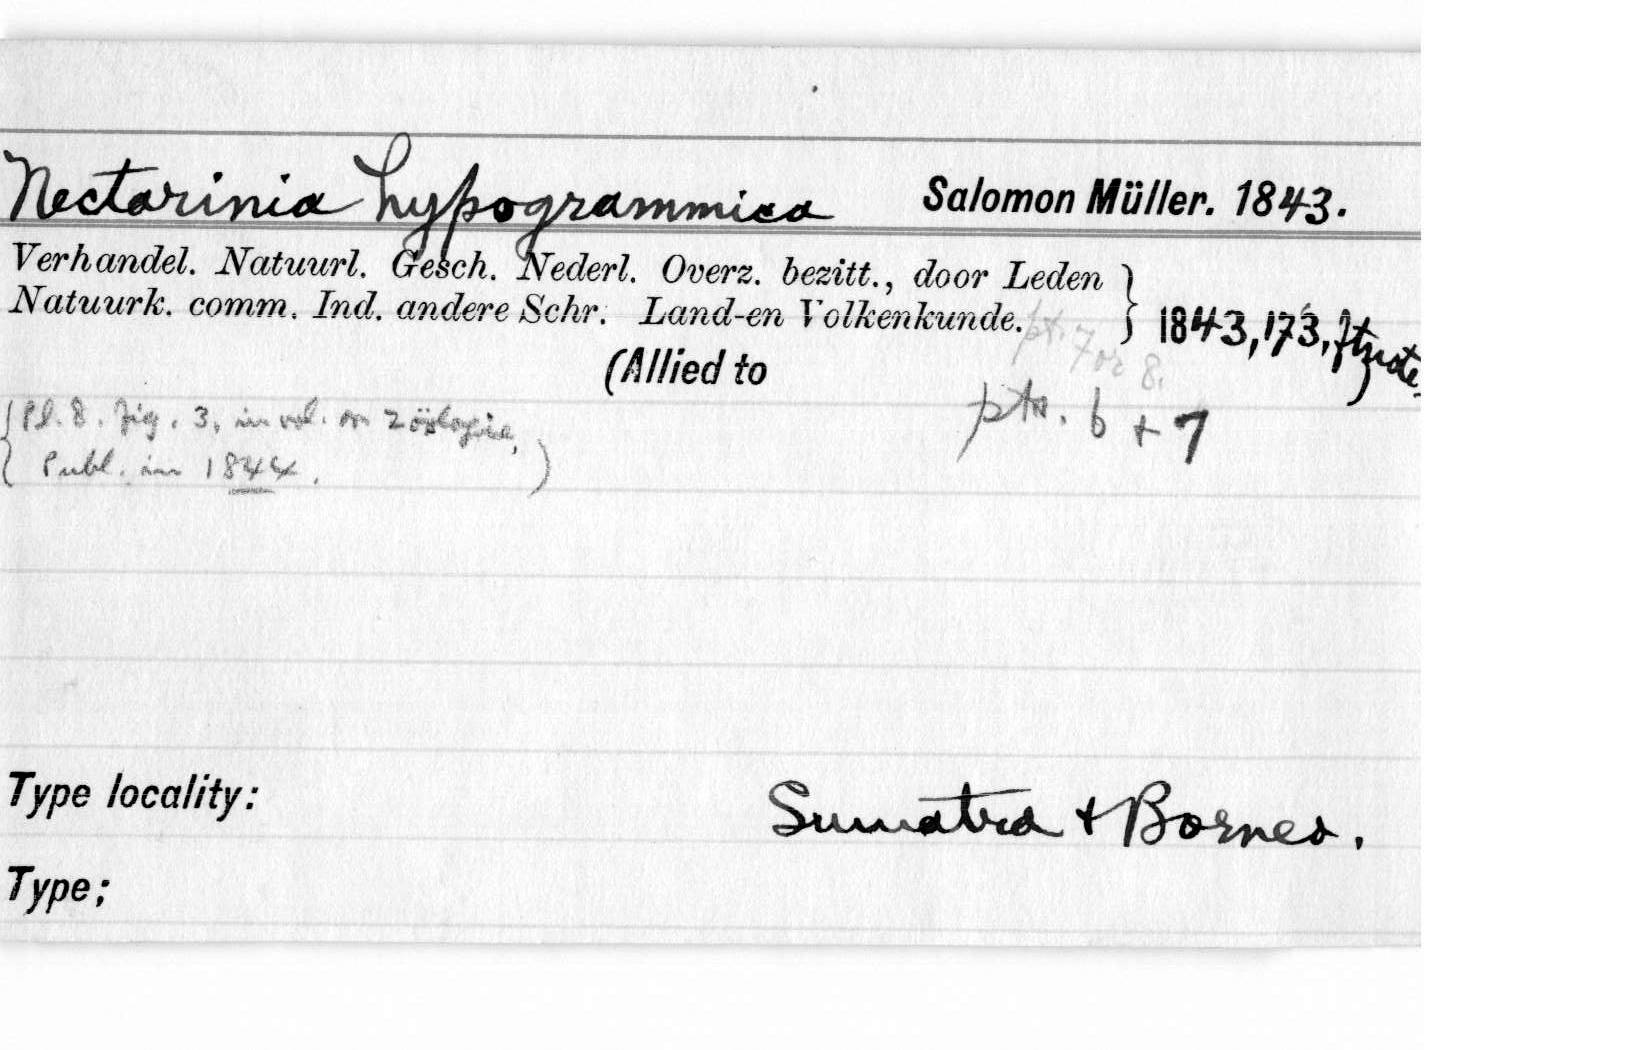 Nectarinia hypogrammica Salomon Müller. 1843.
Verhandel. Natuurl. Gesch. Nederl. Overz. bezitt., door Leden
Natuurk. comm. Ind. andere Schr. Land-en Volkenkunde. } 1843, 173, ftnote.
pt. 7 or 8.
(Allied to )
ptn. 6 + 7
{ Pl. 8. fig. 3, in vol. on Zöologie,
Publ. in 1844. )
Type locality: Sumatra + Borneo.
Type;